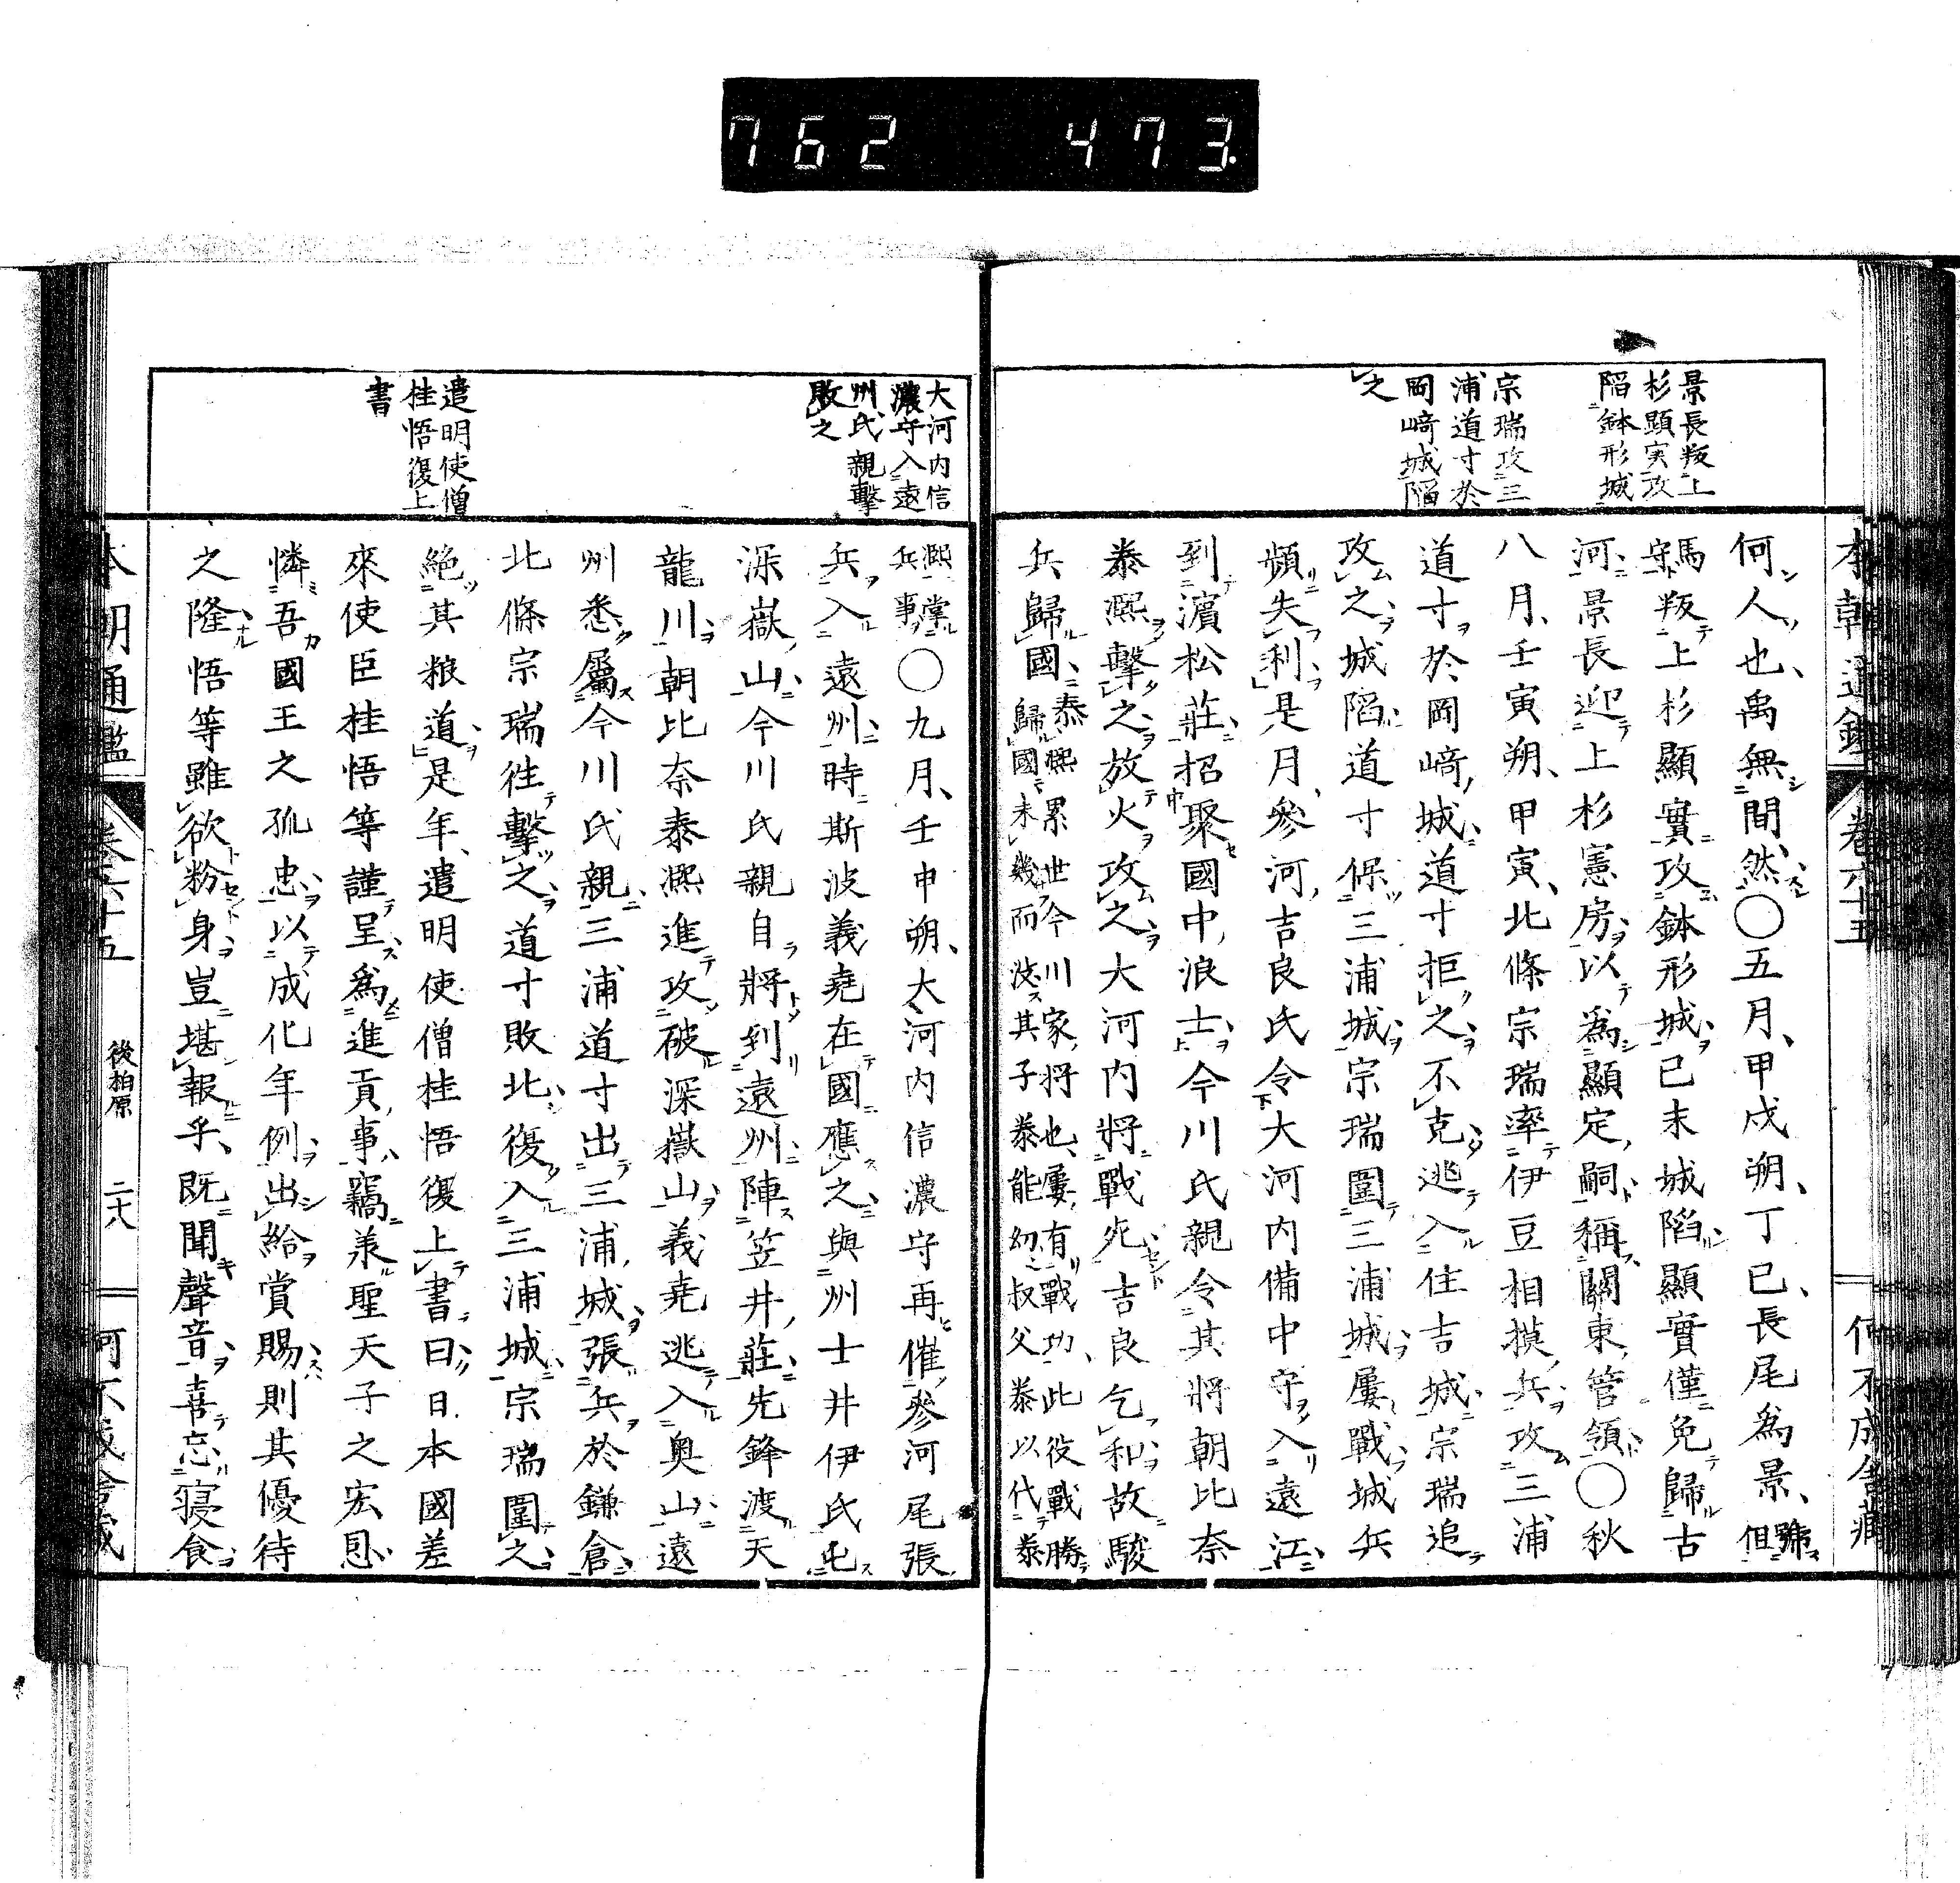 762 473
景長叛上
杉顯実攻
陷鉢形城
宗瑞攻三
浦道寸於
岡﨑城陷
之
何人也禹無間然〇五月甲戌朔丁巳長尾爲景號但
馬守叛上杉顯實攻鉢形城已未城陷顯實僅免歸古
河景長迎上杉憲房以爲顯定嗣稱關東管領〇秋
八月壬寅朔甲寅北條宗瑞率伊豆相摸兵攻三浦
道寸於岡﨑城道寸拒之不克逃入住吉城宗瑞追
攻之城陷道寸保三浦城宗瑞圍三浦城屢戰城兵
頻失利是月參河吉良氏令大河内備中守入遠江
到濵松莊招聚國中浪士今川氏親令其將朝比奈
泰凞擊之放火攻之大河内將戰死吉良乞和故駿
兵歸國泰凞累世今川家將也屢有戰功此役戰勝
歸國未幾而沒其子泰能幼叔父泰以代泰
本朝通鑑 卷六十五 何不成舍藏
大河内信
濃守入遠
州氏親擊
敗之
遣明使僧
桂悟復上
書
凞掌
兵事〇九月壬申朔大河内信濃守再催參河尾張
兵入遠州時斯波義堯在國應之與州士井伊氏屯
深嶽山今川氏親自將到遠州陣笠井莊先鋒渡天
龍川朝比奈泰凞進攻破深嶽山義堯逃入奥山遠
州悉屬今川氏親三浦道寸出三浦城張兵於鎌倉
北條宗瑞往擊之道寸敗北復入三浦城宗瑞圍之
絶其粮道是年遣明使僧桂悟復上書曰日本國差
來使臣桂悟等謹呈爲進貢事竊羕聖天子之宏恩
憐吾國王之孤忠以成化年例出給賞賜則其優待
之隆悟等雖欲粉身豈堪報乎既聞聲音喜忘寢食
本朝通鑑 卷六十五 後柏原 二十八 何不成舍藏